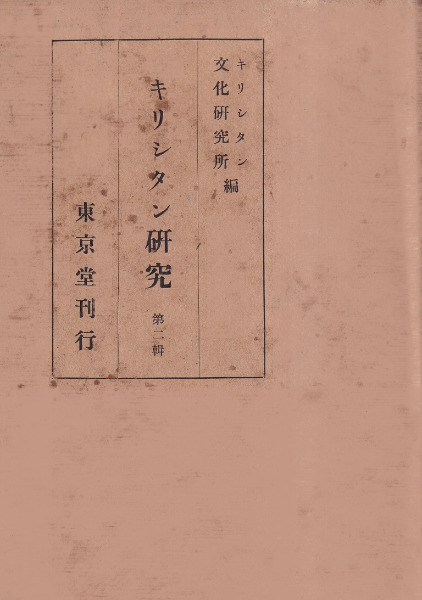 キリシタン
文化研究所 編
キリシタン研究 第二輯
東京堂刊行